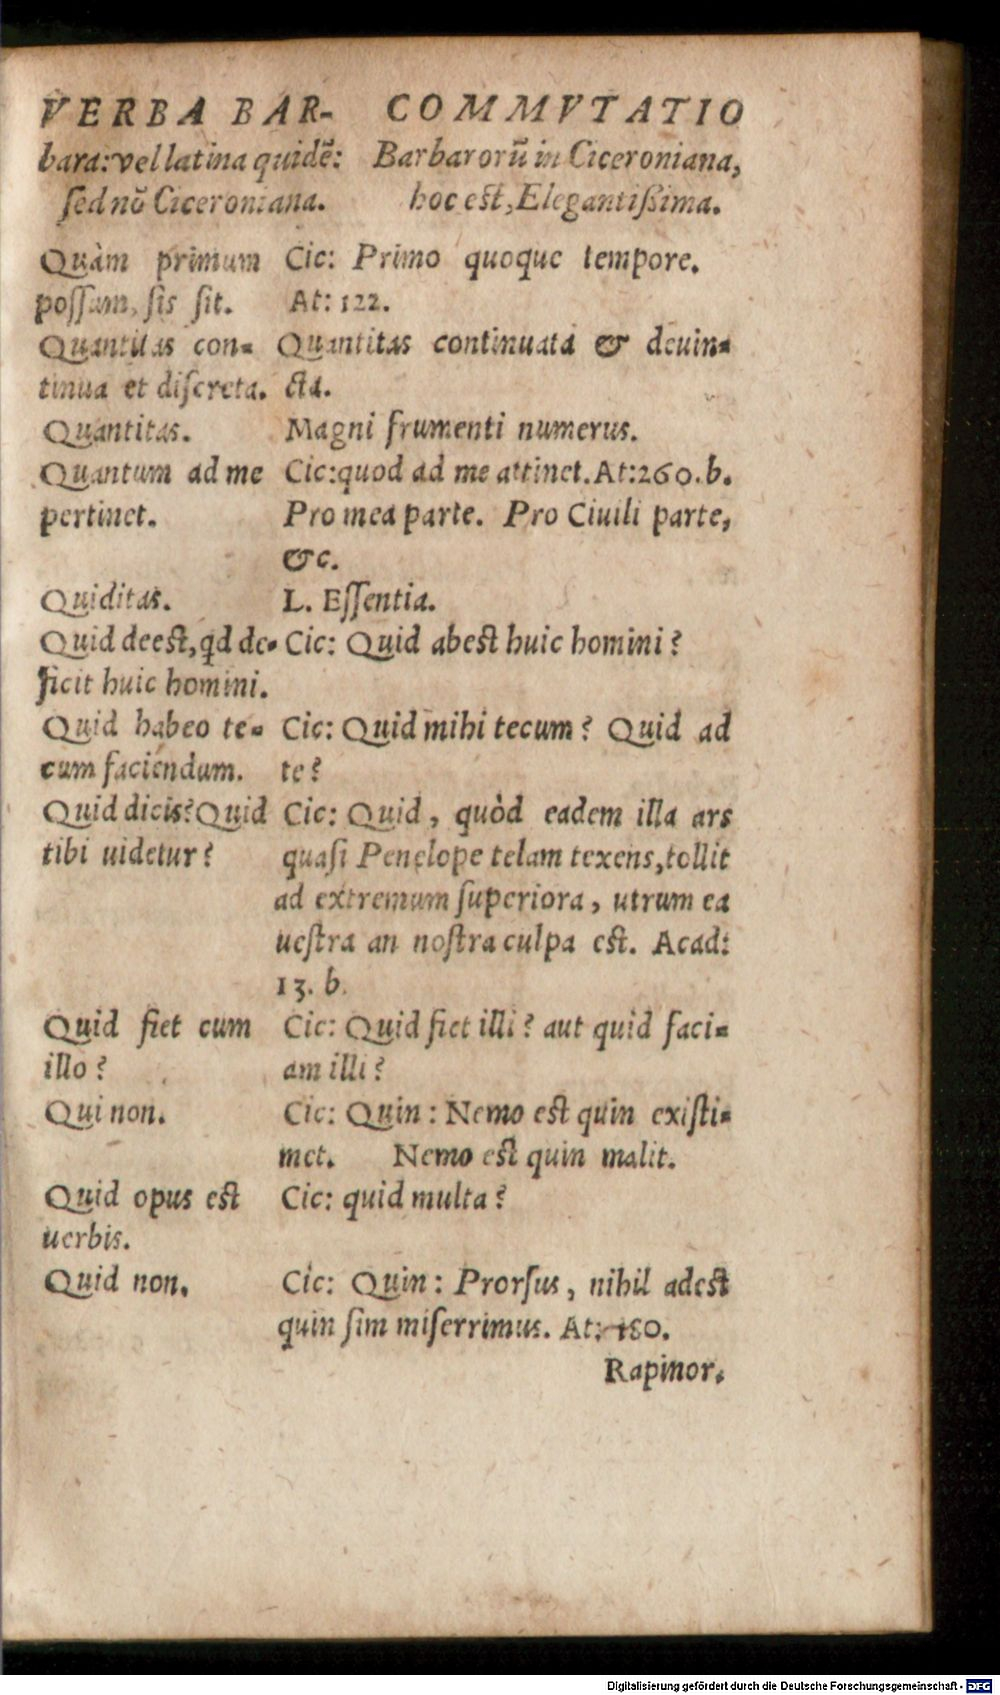 VERBA BAR- COMMVTATIO
bara: vel latina quidē: Barbarorū in Ciceroniana,
sed nō Ciceroniana. hoc est, Elegantißima.
Quàm primum Cic: Primo quoque tempore.
possum, sis sit. At: 122.
Quantitas con= Quantitas continuata & deuin=
tinua et discreta. cta.
Quantitas. Magni frumenti numerus.
Quantum ad me Cic: quod ad me attinet. At: 260. b.
pertinet. Pro mea parte. Pro Ciuili parte,
&c.
Quiditas. L. Essentia.
Quid deest, qd de= Cic: Quid abest huic homini?
ficit huic homini.
Quid habeo te= Cic: Quid mihi tecum? Quid ad
cum faciendum. te?
Quid dicis? Quid Cic: Quid, quòd eadem illa ars
tibi uidetur? quasi Penelope telam texens, tollit
ad extremum superiora, utrum ea
uestra an nostra culpa est. Acad:
13. b.
Quid fiet cum Cic: Quid fiet illi? aut quid faci=
illo? am illi?
Qui non. Cic: Quin: Nemo est quin existi=
met. Nemo est quin malit.
Quid opus est Cic: quid multa?
uerbis.
Quid non. Cic: Quin: Prorsus, nihil adest
quin sim miserrimus. At: 180.
Rapinor.
Digitalisierung gefördert durch die Deutsche Forschungsgemeinschaft - DFG